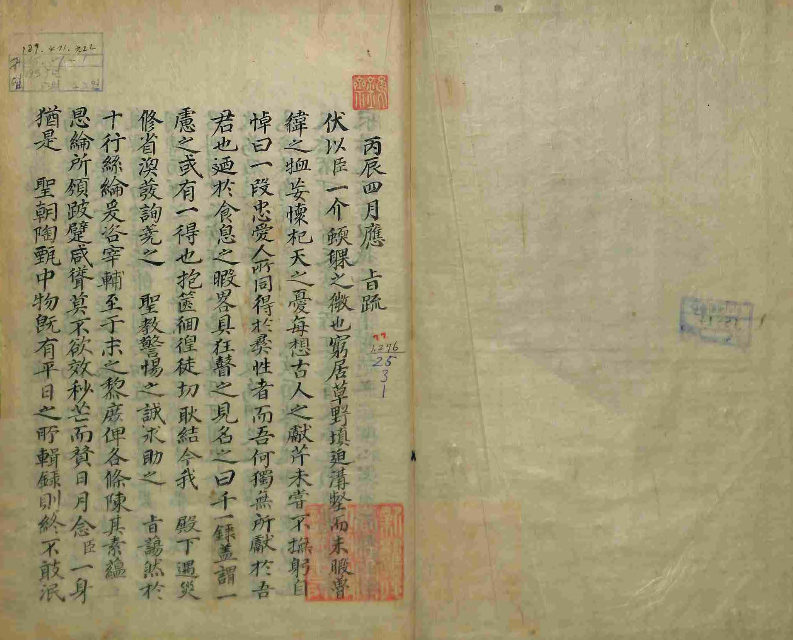 丙辰四月應 旨疏
伏以臣一介螟蜾之微也窮居草野塡迫溝壑而未暇嫠
緯之恤妄懷杞天之憂每想古人之獻芹未嘗不撫躬自
悼曰一段忠愛人所同得於彛性者而吾何獨無所獻於吾
君也迺於食息之暇畧具狂瞽之見名之曰千一錄盖謂一
慮之或有一得也抱篋徊徨徒切耿結今我 殿下遇灾
修省渙發詢蕘之 聖敎警惕之誠求助之 旨藹然於
十行絲綸爰咨宰輔至于末之黎庶俾各條陳其素蘊
思綸所頒跛躄咸聳莫不欲效秒芒而贊日月念臣一身
猶是 聖朝陶甄中物旣有平日之所輯錄則終不敢泯
25
3
1